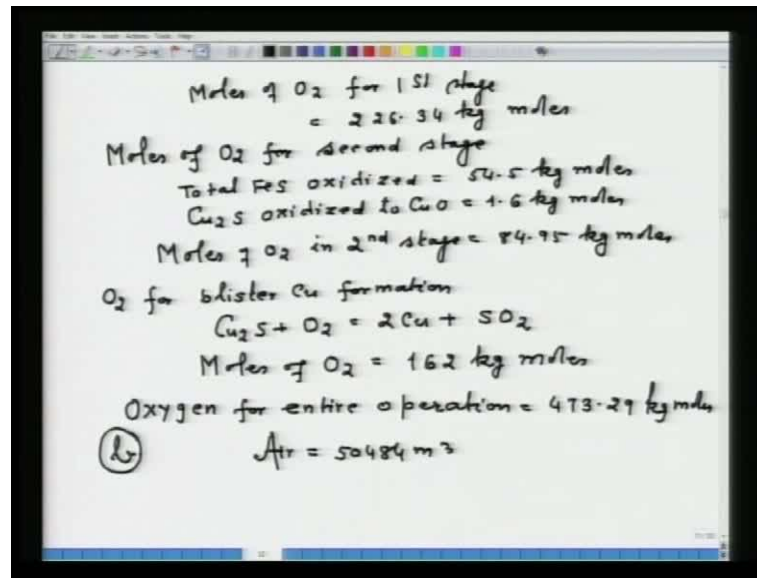 Moles of O2 for 1st stage
= 226.34 kg moles
Moles of O2 for second stage
Total FeS oxidized = 54.5 kg moles
Cu2S oxidized to CuO = 1.6 kg moles
Moles of O2 in 2nd stage = 84.95 kg moles
O2 for blister Cu formation
Cu2S + O2 = 2Cu + SO2
Moles of O2 = 162 kg moles
Oxygen for entire operation = 473.29 kg moles
Air = 50484 m3